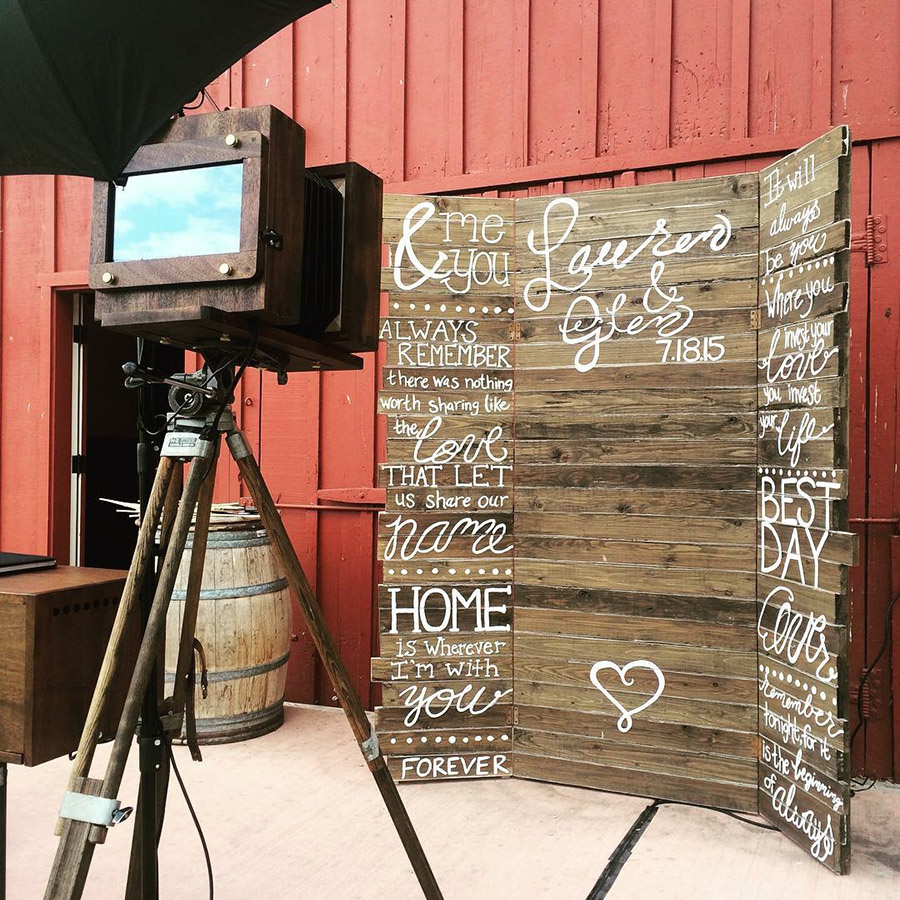 & me
you
ALWAYS
REMEMBER
there was nothing
worth sharing like
the love
THAT LET
us share our
name
HOME
is wherever
I'm with
you
FOREVER
Lauren
&
Glen
7.18.15
It will
always
be you
Where you
invest your
love
you invest
your life
BEST
DAY
ever
Remember
tonight, for it
is the beginning
of always